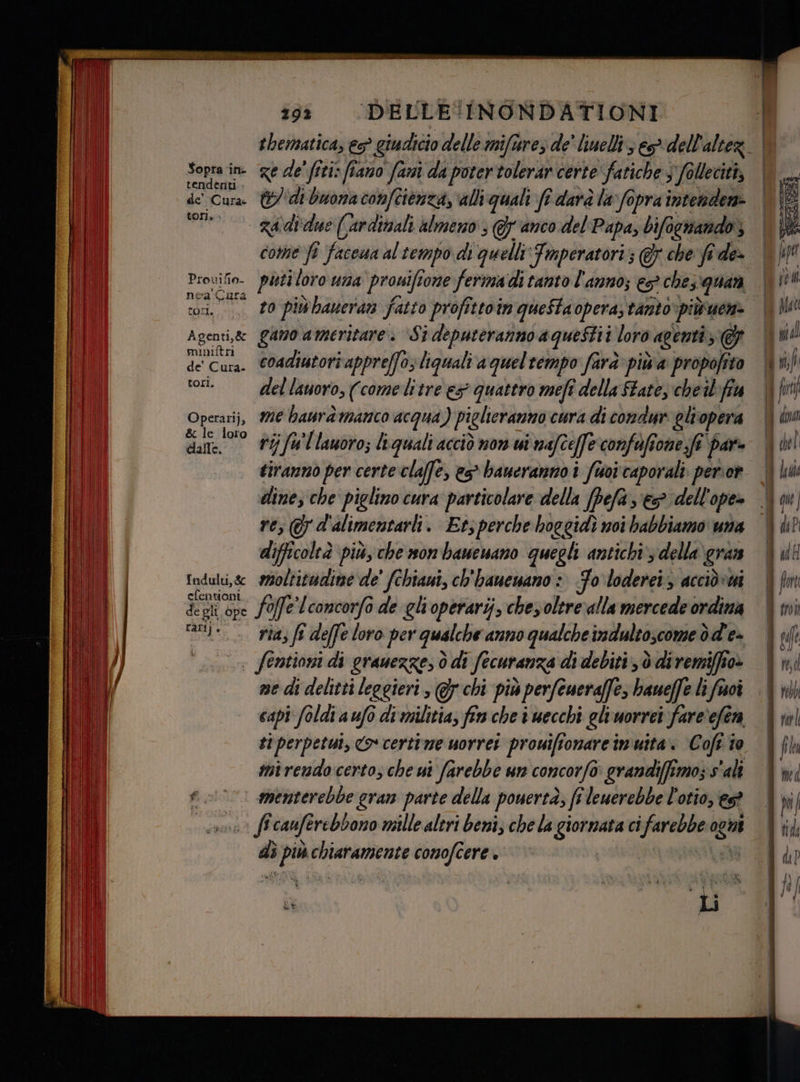 292 DELLE INONDATIONI
thematica, & giudicio delle misure, de' liuelli, & dell'altez
Sopra intendenti de' Curatori.
ze de' siti: siano sani da poter tolerar certe fatiche; solleciti,
& di buona conscienza, alli quali si darà la sopra intenden-
za di due Cardinali almeno, & anco del Papa, bisognando;
come si faceua al tempo di quelli Imperatori; & che si de-
Prouisione a' Curatori.
puti loro una prouisione ferma di tanto l'anno; & che, quan
to più haueran fatto profitto in questa opera, tanto più uen-
Agenti, & ministri de' Curatori.
gano a meritare. Si deputeranno a questi i loro agenti, &
coadiutori appresso, liquali a quel tempo sarà più a proposito
del lauoro, (come li tre & quattro mesi della state, che il fiu
Operarij, & le loro classe.
me haurà manco acqua) piglieranno cura di condur gli opera
rij su'l lauoro; li quali acciò non ui nascesse confusione, si par-
tiranno per certe classe, & haueranno i suoi caporali per or
dine, che piglino cura particolare della spesa, & dell'ope-
re, & d'alimentarli. Et, perche hoggidì noi habbiamo una
difficoltà più, che non haueuano quegli antichi, della gran
Indulti, & esentioni degli operarij.
moltitudine de' schiaui, ch'haueuano: Io loderei, acciò ui
fosse'l concorso de gli operarij, che, oltre alla mercede ordina
ria, si desse loro per qualche anno qualche indulto, come ò d'e-
sentioni di grauezze, ò di securanza di debiti, ò di remissio-
ne di delitti leggieri, & chi più perseuerasse, hauesse li suoi
capi soldi a uso di militia, sin che i uecchi gli uorrei fare esen
ti perpetui, & certi ne uorrei prouisionare in uita. Così io
mi rendo certo, che ui sarebbe un concorso grandissimo; s'ali
menterebbe gran parte della pouertà, si leuerebbe l'otio, &
si causerebbono mille altri beni, che la giornata ci farebbe ogni
dì più chiaramente conoscere.
Li